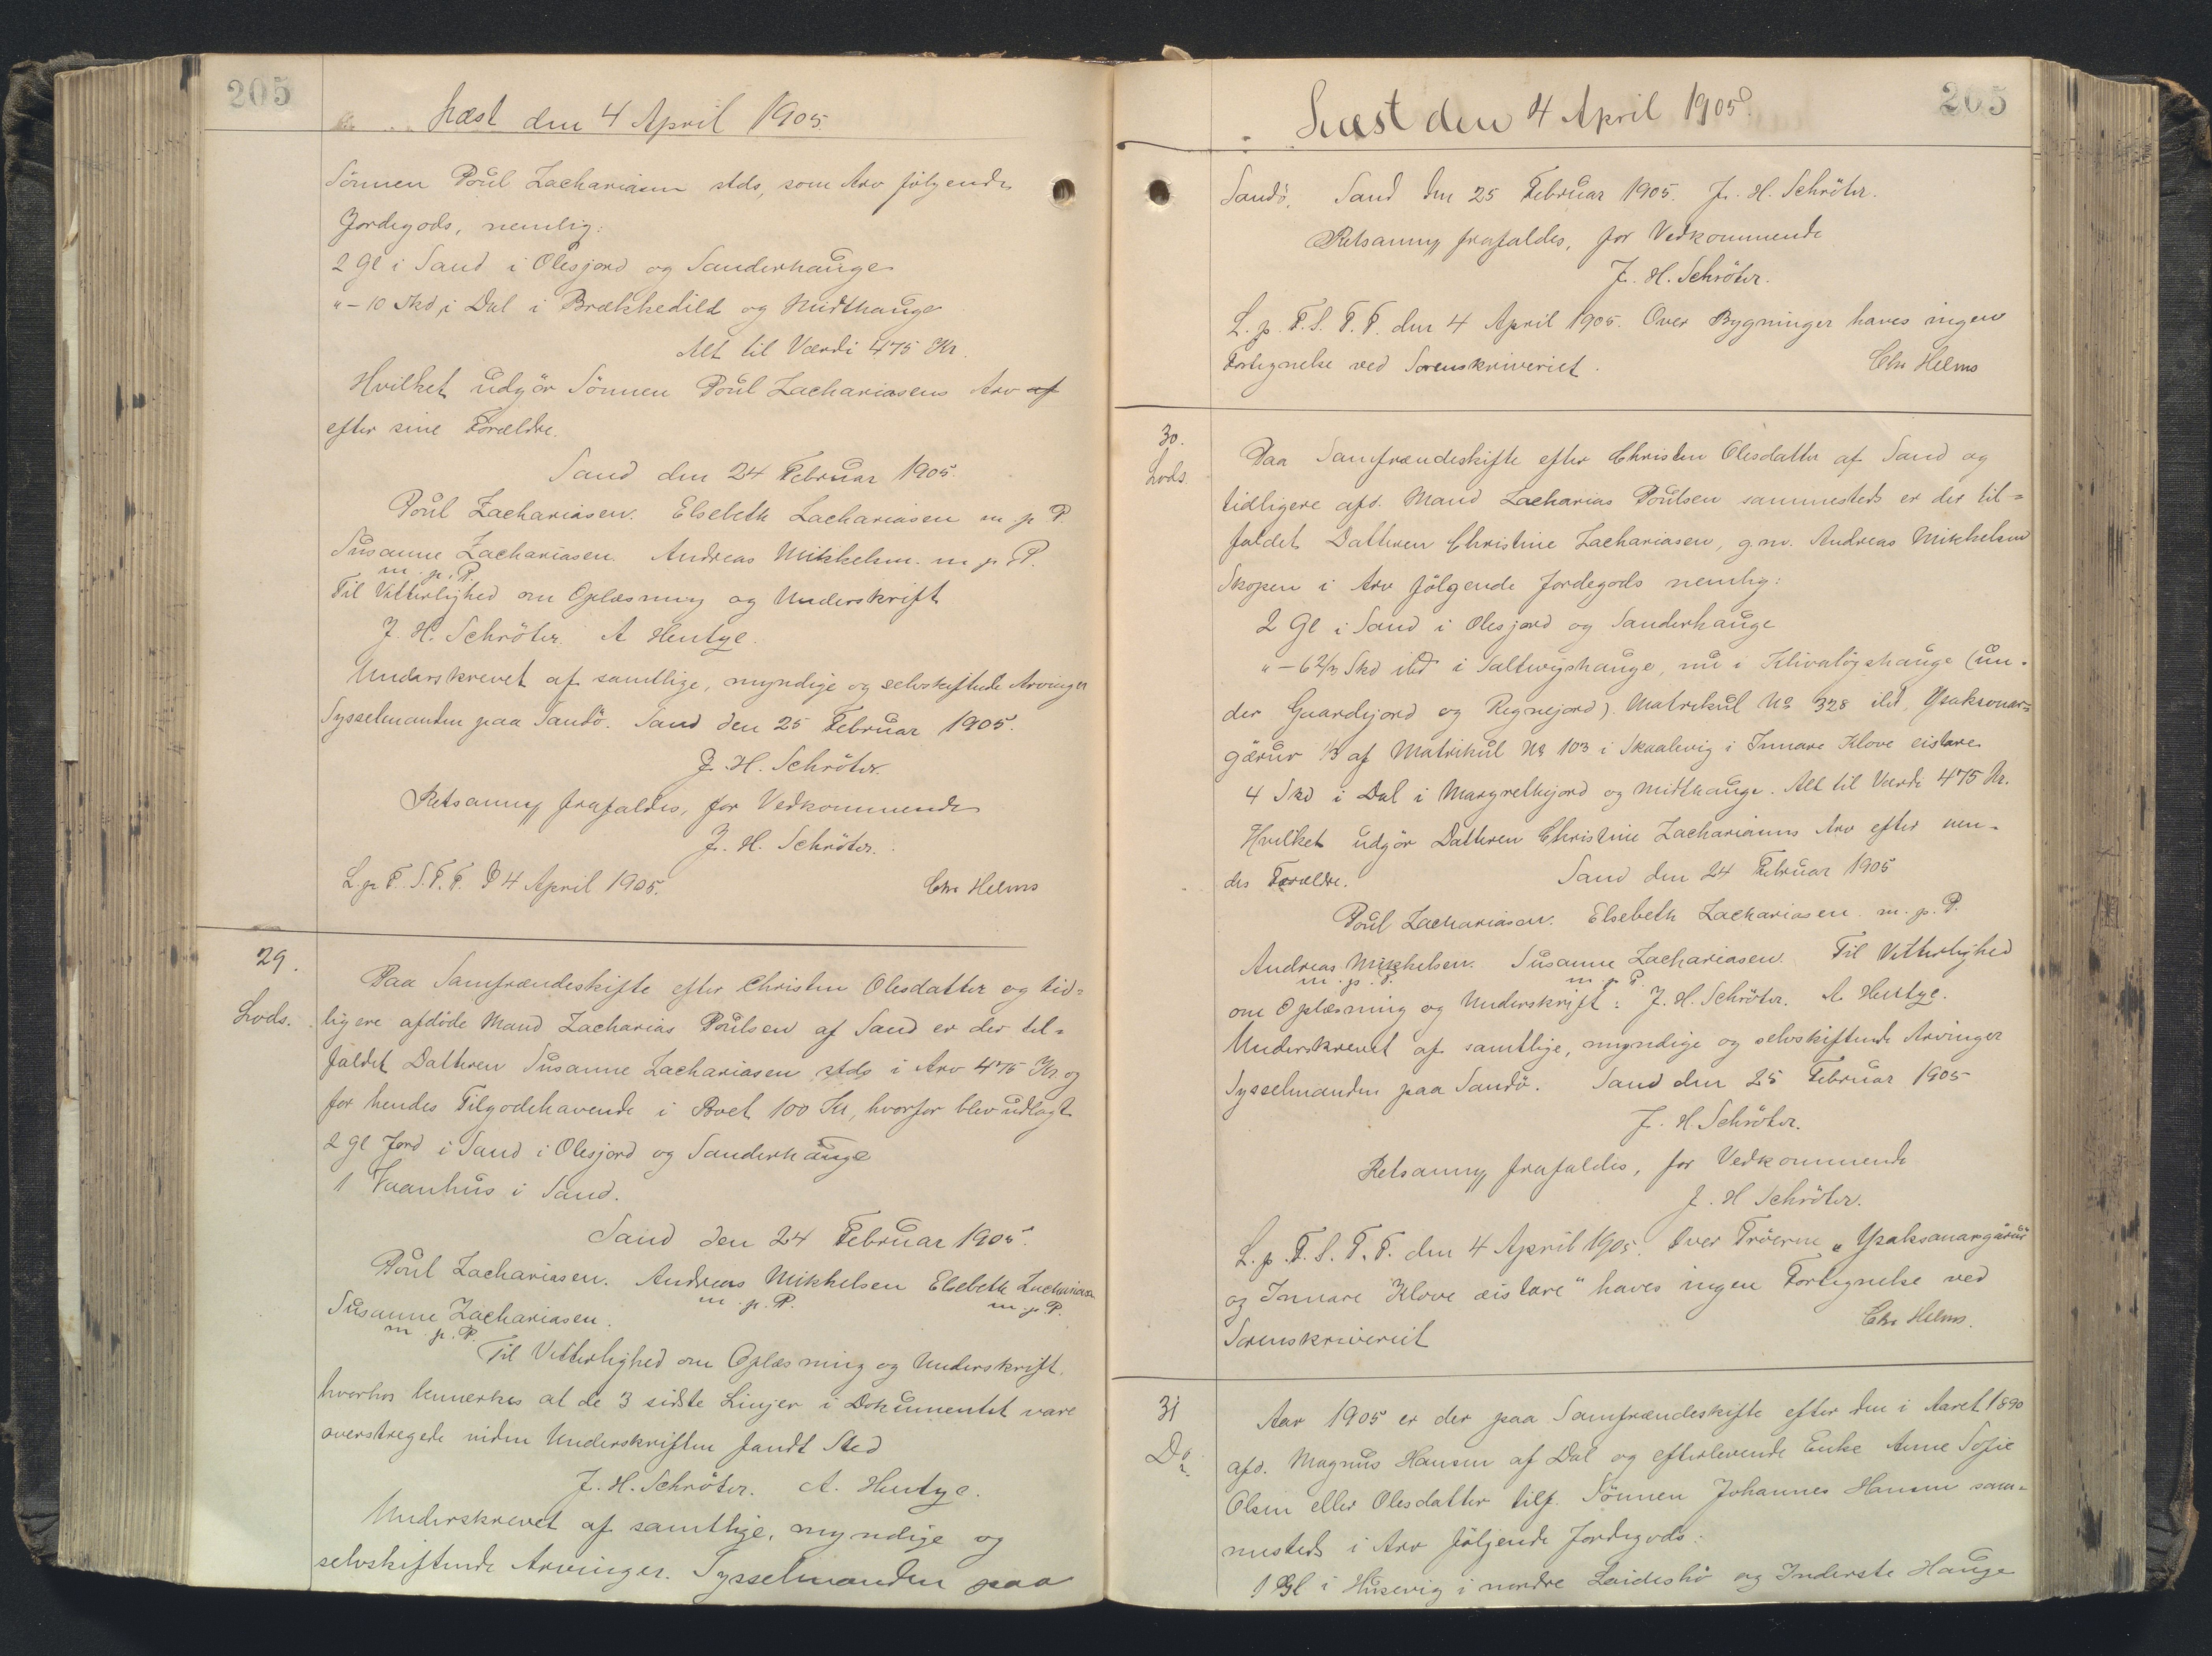 205
Læst den 4 April 1905.
Sönnen Poul Zachariasen stds, som Arv fölgende
Jordegods, nemlig:
2 Gl i Sand i Olesjord og Sanderhauge
" – 10 Skd, i Dal i Brækkedild og Midthauge
Alt til Værdi 475 Kr.
Hvilket udgör Sönnen Poul Zachariasens Arv af
efter sine Forældre.
Sand den 24 Februar 1905.
Poul Zachariasen. Elsebeth Zachariasen m p P.
Susanne Zachariasen. Andreas Mikkelsen. m p P.
m. p. P.
Til Vitterlighed om Oplæsning og Underskrift
J. H. Schröter. A Hentze.
Underskrevet af samtlige, myndige og selvskiftende Arvinger
Sysselmanden paa Sandö. Sand den 25 Februar 1905.
J. H. Schröter.
Retsanmg frafaldes, for Vedkommende
J. H. Schröter.
L. p F. S. F. F. D 4 April 1905.
Chr Helms
29.
Lods.
Paa Samfrændeskifte efter Christen Olesdatter og tid=
ligere afdöde Mand Zacharias Poulsen af Sand er der til=
faldet Datteren Susanne Zachariasen stds i Arv 475 Kr og
for hendes Tilgodehavende i Boet 100 Kr, hvorfor blev udlagt
2 Gl Jord i Sand i Olesjord og Sanderhauge
1 Vaanhus i Sand.
Sand den 24 Februar 1905.
Poul Zachariasen. Andreas Mikkelsen Elsebeth Zachariasen
m. p. P. m. p. P.
Susanne Zachariasen.
m. p. P.
Til Vitterlighed om Oplæsning og Underskrift.
hvorhos bemerkes at de 3 sidste Linjer i Dokumentet vare
overstregede inden Underskriften fandt Sted
J. H. Schröter. A. Hentze.
Underskrevet af samtlige, myndige og
selvskiftende Arvinger. Sysselmanden paa
205
Læst den 4 April 1905.
Sandö. Sand den 25 Februar 1905. J. H. Schröter.
Retsanmg frafaldes, for Vedkommende
J. H. Schröter.
L. p. F. S. F. F. den 4 April 1905. Over Bygninger haves ingen
Fortegnelse ved Sorenskriveriet.
Chr Helms
30.
Lods.
Paa Samfrændeskifte efter Christen Olesdatter af Sand og
tidligere afd. Mand Zacharias Poulsen sammesteds er der til=
faldet Datteren Christine Zachariasen, g. m. Andreas Mikkelsen
Skopen i Arv fölgende Jordegods nemlig:
2 Gl i Sand i Olesjord og Sanderhauge
" – 6 2/3 Skd ibd i Saltvigshauge, nu i Klivalögshauge (un=
der Guardijord og Regnejord). Matrikul No 328 ibd, Ysaksonar=
gärur 1/3 af Matrikul No 103 i Skaalevig i Innare Klove eistare
4 Skd i Dal i Margrethejord og Midthauge. Alt til Værdi 475 Kr.
Hvilket udgör Datteren Christine Zachariasens Arv efter
des Forældre. Sand den 24 Februar 1905
Poul Zachariasen. Elsebeth Zachariasen m. p. P.
Andreas Mikkelsen. Susanne Zachariasen. Til Vitterlighed
m. p. P. m p P.
om Oplæsning og Underskrift: J. H. Schröter. A Hentze.
Underskrevet af samtlige, myndige og selvskiftende Arvinger
Sysselmanden paa Sandö. Sand den 25 Februar 1905
J. H. Schröter.
Retsanmg frafaldes, for Vedkommende
J. H Schröter.
L. p. F. S. F. F. den 4 April 1905. Over Tröerne „Ysaksonargärur"
og Innare Klove eistare" haves ingen Fortegnelse ved
Sorenskriveriet
Chr Helms.
31
Do
Aar 1905 er der paa Samfrændeskifte efter den i Aaret 1890
afd. Magnus Hansen af Dal og efterlevende Enke Anne Sofie
Olsen eller Olesdatter tilf. Sönnen Johannes Hansen sam=
mesteds i Arv fölgende Jordegods:
1 Gl i Husevig i nordre Leideshö og Inderste Hauge